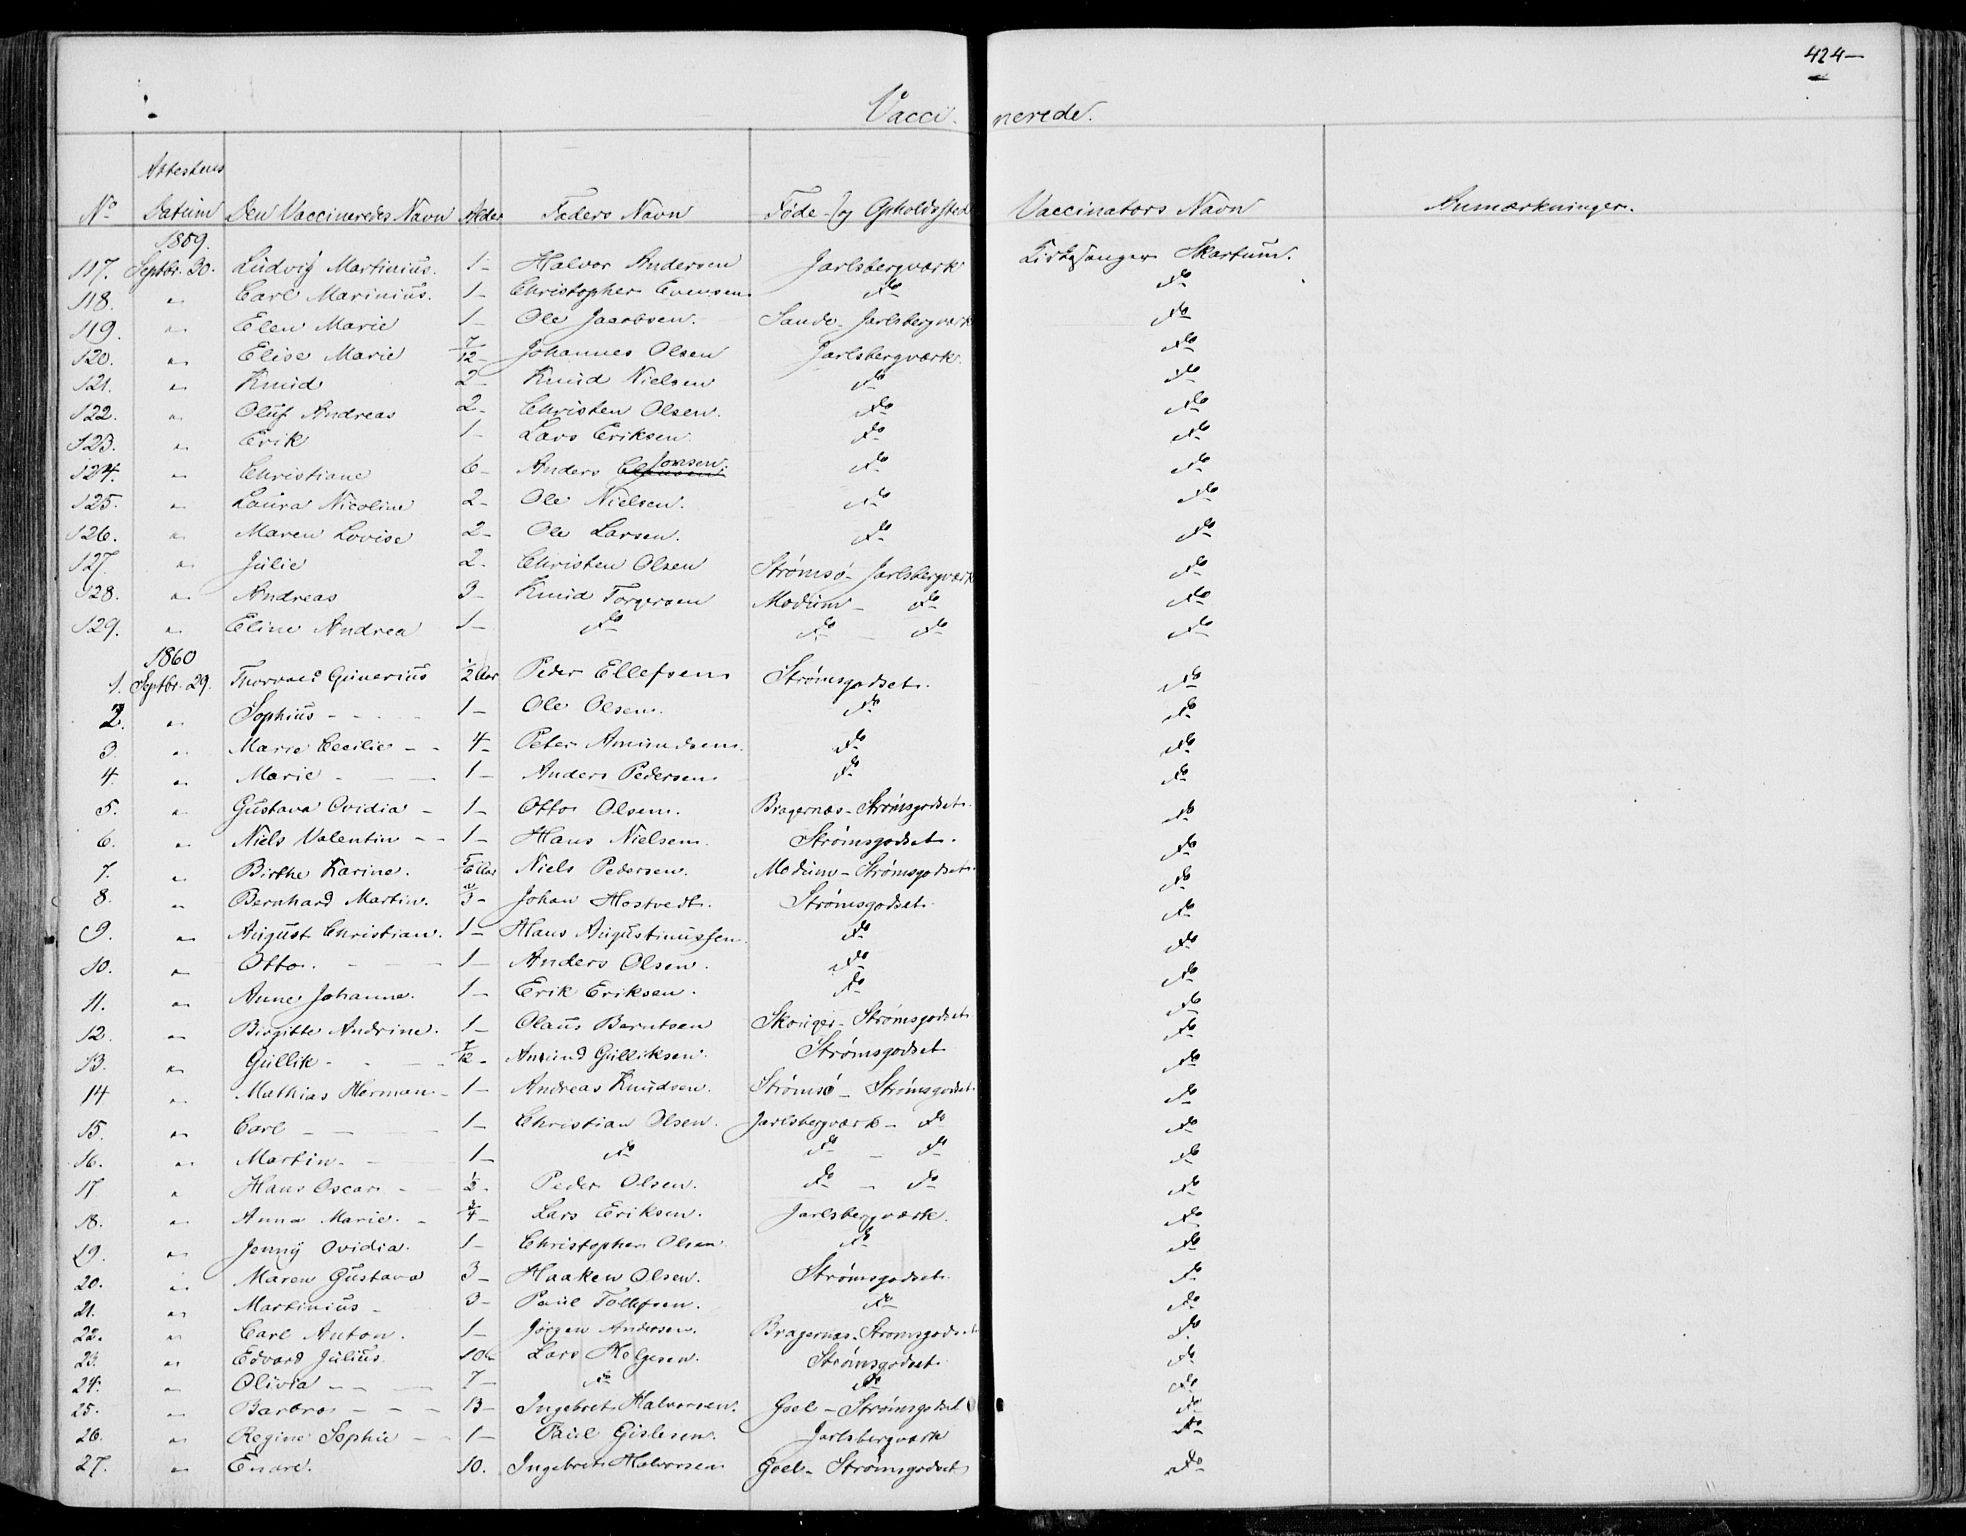 424-
Vaccinerede.
No | Attestens Datum | Den Vaccineredes Navn | Alder | Faders Navn | Føde- og Opholdssted | Vaccinators Navn | Anmærkninger.
1859.
117. Septbr. 30. Ludvig Martinius. 1- Halvor Andersen Jarlsbergværk Kirkesanger Skartum.
118. " Carl Marinius. 1- Christopher Evensen do do
119. " Elen Marie 1- Ole Jacobsen. Sande- Jarlsbergværk do
120. " Elise Marie 7/12- Johannes Olsen Jarlsbergværk. do
121. " Knud 2- Knud Nielsen do do
122. " Oluf Andreas 2- Christen Olsen. do do
123. " Erik 1- Lars Eriksen. do do
124. " Christiane 6- Anders Jonsen. do do
125. " Laura Nicoline 2- Ole Nielsen. do do
126. " Maren Lovise 2- Ole Larsen. do do
127. " Julie 2- Christen Olsen Strømsø- Jarlsbergværk do
128. " Andreas 3- Knud Torgersen Modum- do do
129. " Eline Andrea 1- do do - do do
1860
1. Septbr. 29. Thorvald Gunerius 1/2 Aar Peder Ellefsen Strømsgodset. do
2. " Sophius - - 1- Ole Olsen. do do
3. " Marie Cecilie - - 4- Peter Amundsen. do do
4. " Marie - - 1- Anders Pedersen do do
5. " Gustava Ovidia - 1- Otto Olsen. Bragernæs- Strømsgodset. do
6. " Niels Valentin - - 1- Hans Nielsen. Strømsgodset. do
7. " Birthe Karine. Niels Pedersen. Modum- Strømsgodset. do
8. " Bernhard Martin. Johan Hostvedt. Strømsgodset. do
9. " August Christian. 1- Hans Augustinussen. do do
10. " Otto. - - 1- Anders Olsen. do do
11. " Anne Johanne. 1- Erik Eriksen. do do
12. " Birgitte Andrine. 1- Olaus Berntsen Skouger- Strømsgodset do
13. " Gullik - - 7/12- Amund Gulliksen. Strømsgodset do
14 " Mathias Herman - 1- Andreas Knudsen. Strømsø- Strømsgodset. do
15. " Carl - - 1- Christian Olsen. Jarlsbergværk- do do
16. " Martin. - 1- do do - do do
17 " Hans Oscar - 1/2- Peder Olsen. do - do do
18. " Anna Marie. - 3/4- Lars Eriksen. Jarlsbergværk. do
19. " Jenny Ovidia. 1- Christopher Olsen do do
20. " Maren Gustava 3- Haaken Olsen. Strømsgodset. do
21. " Martinius - 3- Paul Tollefsen. do do
22. " Carl Anton. 1- Jørgen Andersen. Bragernæs- Strømsgodset do
23. " Edvard Julius. 10- Lars Helgesen. Strømsgodset do
24. " Olivia - - 7- do do do
25. " Barbro - - - 13- Ingebret Halvorsen. Goel- Strømsgodset do
26. " Regine Sophie - 1- Paul Gislesen. Jarlsbergværk do
27. " Enare. 10. Ingebret Halvorsen Goel- Strømsgodset do